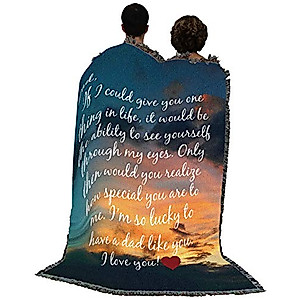 If I could give you one
thing in life, it would be
ability to see yourself
through my eyes. Only
then would you realize
how special you are to
me. I'm so lucky to
have a dad like you.
I love you!